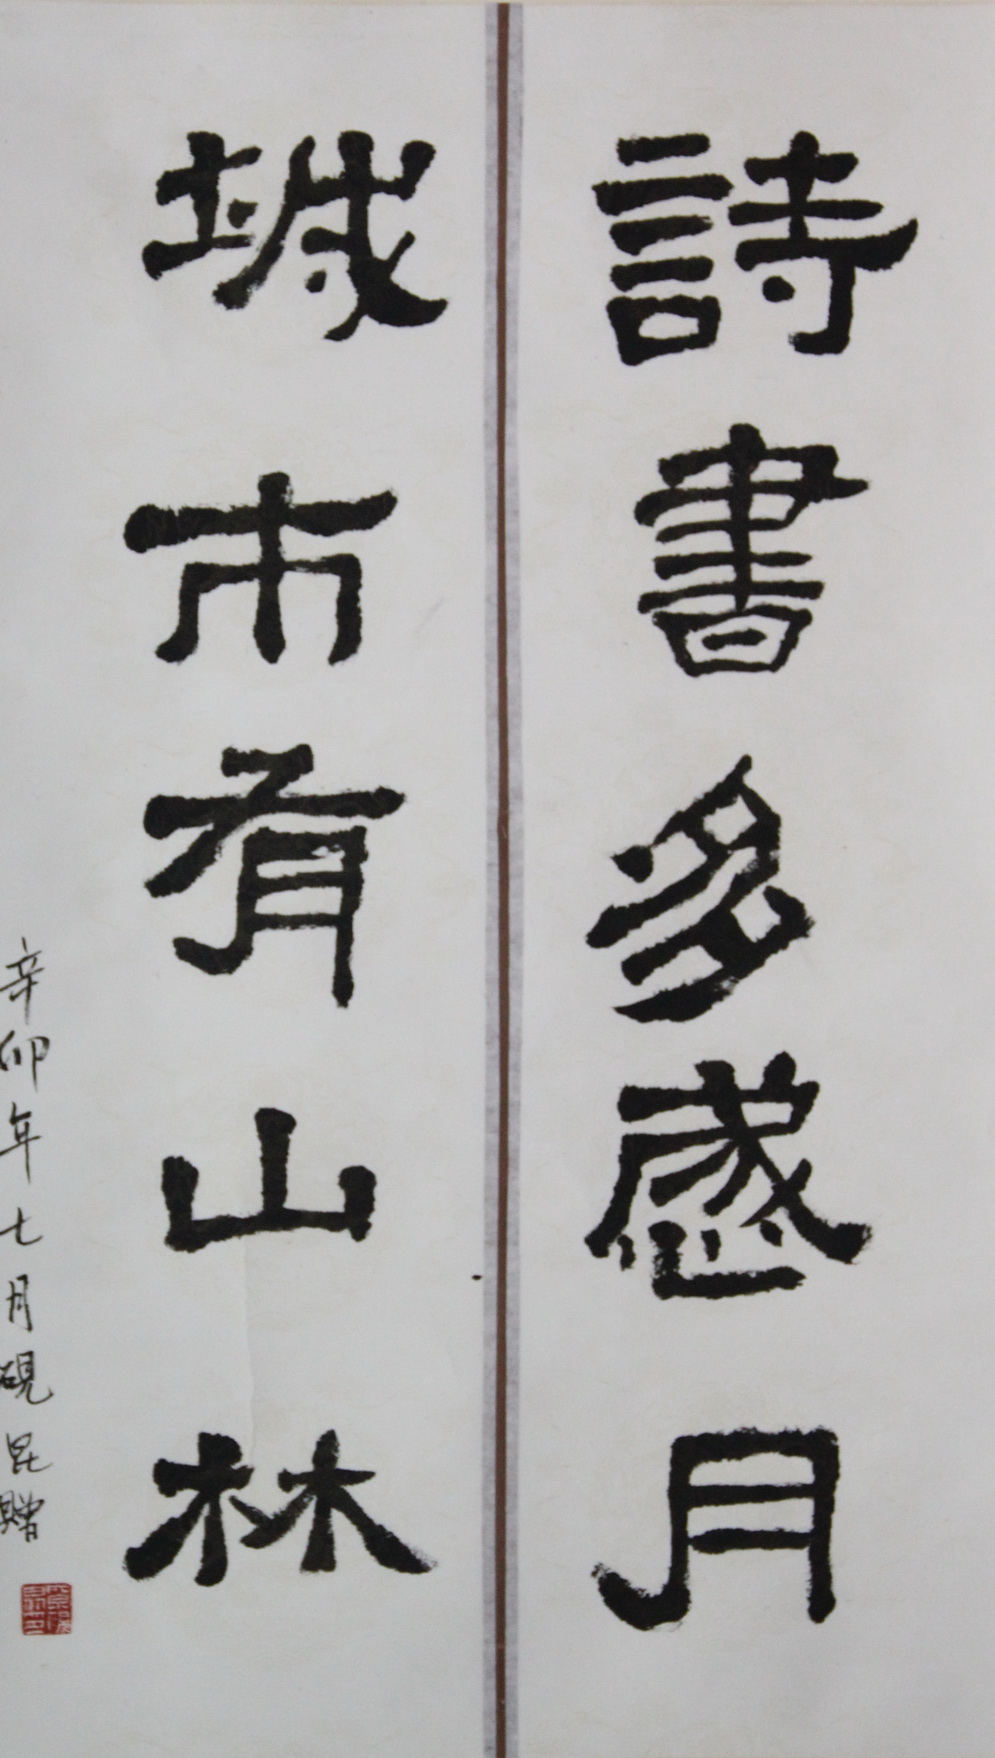 詩書多感月
城市有山林
辛卯年七月硯昆贈